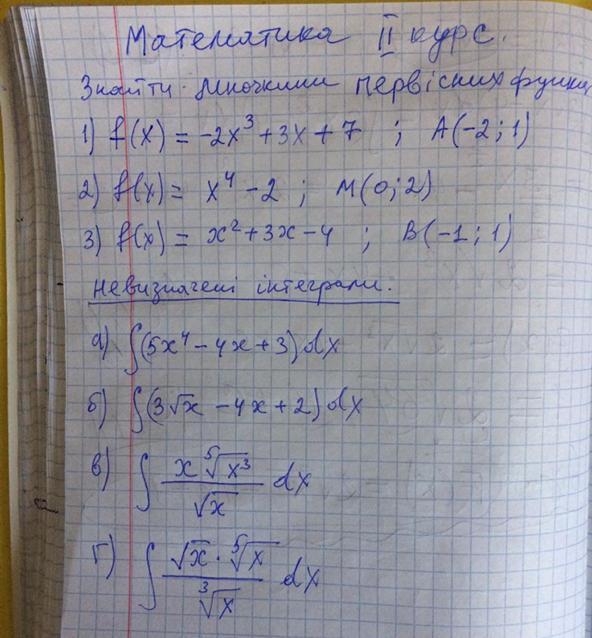 Математика II курс.
Знайти множини первісних функц
1) f(x) = -2x³ + 3x + 7 ; A(-2; 1)
2) f(x) = x⁴ - 2 ; M(0; 2)
3) f(x) = x² + 3x - 4 ; B(-1; 1)
невизначені інтеграли.
а) ∫(5x⁴ - 4x + 3)dx
б) ∫(3√x - 4x + 2)dx
в) ∫ (x ⁵√x³)/(√x) dx
г) ∫ (√x · ⁵√x)/(³√x) dx